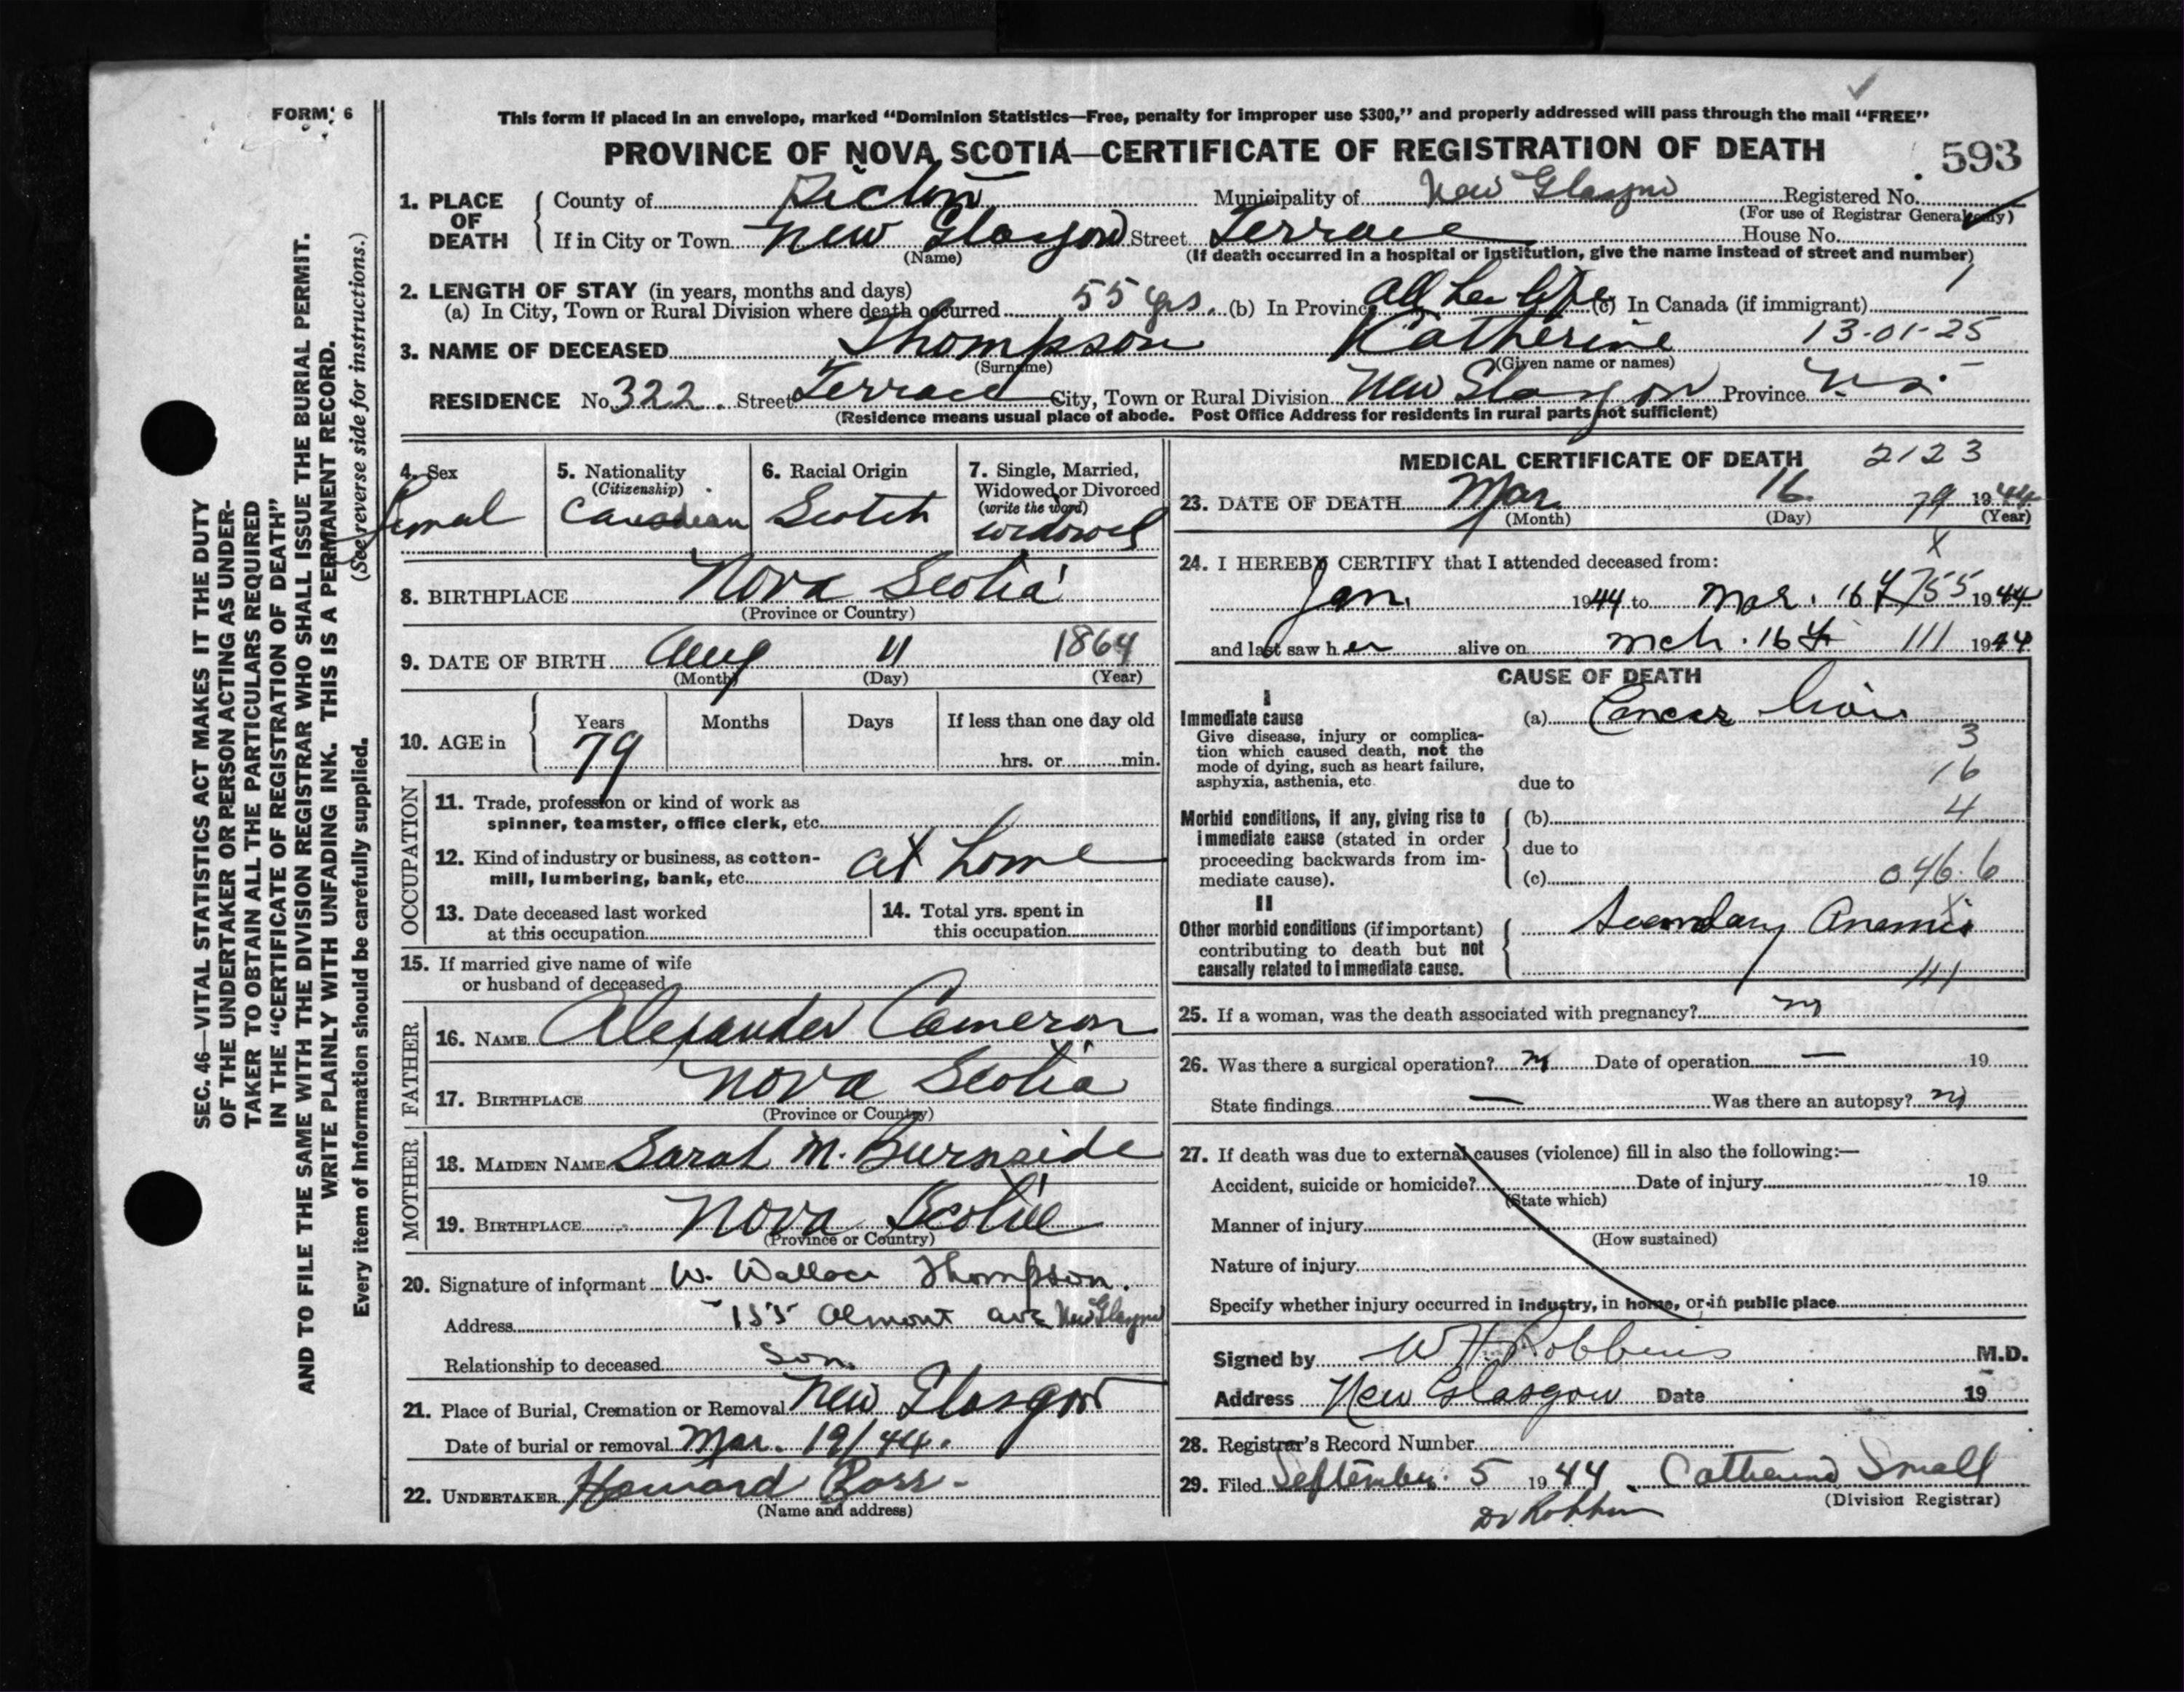 FORM 6
This form if placed in an envelope, marked “Dominion Statistics—Free, penalty for improper use $300,” and properly addressed will pass through the mail “FREE”
PROVINCE OF NOVA SCOTIA—CERTIFICATE OF REGISTRATION OF DEATH
593
1. PLACE OF DEATH
County of Pictou Municipality of New Glasgow Registered No.
(For use of Registrar General only)
If in City or Town New Glasgow Street Terrace House No.
(Name) (If death occurred in a hospital or institution, give the name instead of street and number)
2. LENGTH OF STAY (in years, months and days)
(a) In City, Town or Rural Division where death occurred 55 yrs. (b) In Province All her life (c) In Canada (if immigrant)
3. NAME OF DECEASED Thompson Katherine 13-01-25
(Surname) (Given name or names)
RESIDENCE No. 322. Street Terrace City, Town or Rural Division New Glasgow Province N.S.
(Residence means usual place of abode. Post Office Address for residents in rural parts not sufficient)
4. Sex
Femal
5. Nationality
(Citizenship)
Canadian
6. Racial Origin
Scotch
7. Single, Married,
Widowed or Divorced
(write the word)
widowed
8. BIRTHPLACE Nova Scotia
(Province or Country)
9. DATE OF BIRTH Aug 11 1864
(Month) (Day) (Year)
10. AGE in
Years Months Days If less than one day old
79 hrs. or min.
OCCUPATION
11. Trade, profession or kind of work as
spinner, teamster, office clerk, etc.
12. Kind of industry or business, as cotton-
mill, lumbering, bank, etc. at home
13. Date deceased last worked
at this occupation
14. Total yrs. spent in
this occupation
15. If married give name of wife
or husband of deceased
FATHER
16. NAME Alexander Cameron
17. BIRTHPLACE Nova Scotia
(Province or Country)
MOTHER
18. MAIDEN NAME Sarah M. Burnside
19. BIRTHPLACE Nova Scotia
(Province or Country)
20. Signature of informant W. Wallace Thompson.
Address 155 Almont ave New Glasgow
Relationship to deceased Son.
21. Place of Burial, Cremation or Removal New Glasgow
Date of burial or removal Mar. 19/44.
22. UNDERTAKER Howard Ross
(Name and address)
MEDICAL CERTIFICATE OF DEATH 2123
23. DATE OF DEATH Mar. 16. 79 1944
(Month) (Day) (Year)
X
24. I HEREBY CERTIFY that I attended deceased from:
Jan. 1944 to Mar. 16 1944
and last saw her alive on Mch. 16 111 1944
CAUSE OF DEATH
I
Immediate cause
Give disease, injury or complica-
tion which caused death, not the
mode of dying, such as heart failure,
asphyxia, asthenia, etc.
(a) Cancer liver
3
16
due to
Morbid conditions, if any, giving rise to
immediate cause (stated in order
proceeding backwards from im-
mediate cause).
(b) 4
due to
(c) 046.6
II
Other morbid conditions (if important)
contributing to death but not
causally related to immediate cause.
Secondary Anemia
111
25. If a woman, was the death associated with pregnancy? no
26. Was there a surgical operation? no Date of operation — 19
State findings — Was there an autopsy? no
27. If death was due to external causes (violence) fill in also the following:—
Accident, suicide or homicide? Date of injury 19
(State which)
Manner of injury
(How sustained)
Nature of injury
Specify whether injury occurred in industry, in home, or in public place
Signed by W H Robbins M.D.
Address New Glasgow Date 19
28. Registrar's Record Number
29. Filed September 5 1944 Catherine Small
(Division Registrar)
Dr Robbins
SEC. 46—VITAL STATISTICS ACT MAKES IT THE DUTY
OF THE UNDERTAKER OR PERSON ACTING AS UNDER-
TAKER TO OBTAIN ALL THE PARTICULARS REQUIRED
IN THE “CERTIFICATE OF REGISTRATION OF DEATH”
AND TO FILE THE SAME WITH THE DIVISION REGISTRAR WHO SHALL ISSUE THE BURIAL PERMIT.
WRITE PLAINLY WITH UNFADING INK. THIS IS A PERMANENT RECORD.
Every item of Information should be carefully supplied. (See reverse side for instructions.)